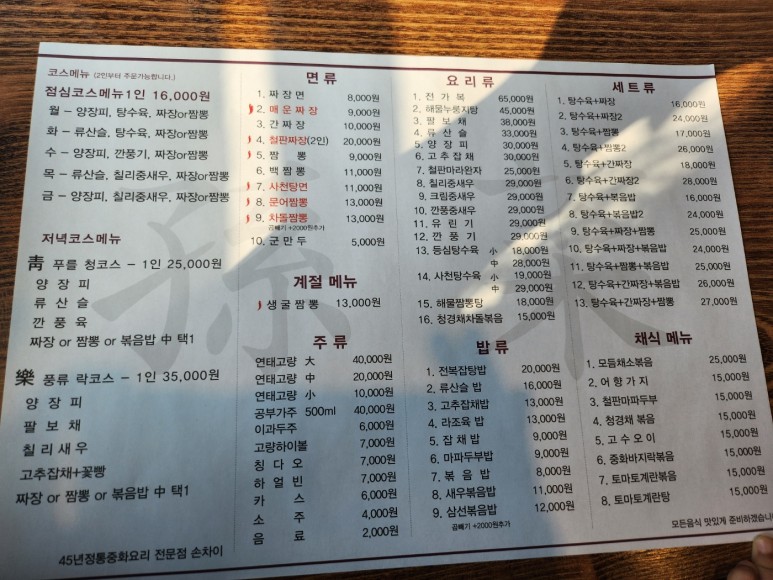 코스메뉴 (2인부터 주문가능합니다.)
점심코스메뉴1인 16,000원
월 – 양장피, 탕수육, 짜장or짬뽕
화 – 류산슬, 탕수육, 짜장or짬뽕
수 – 양장피, 깐풍기, 짜장or짬뽕
목 – 류산슬, 칠리중새우, 짜장or짬뽕
금 – 양장피, 칠리중새우, 짜장or짬뽕
저녁코스메뉴
靑 푸를 청코스 – 1인 25,000원
양 장 피
류 산 슬
깐 풍 육
짜장 or 짬뽕 or 볶음밥 中 택1
樂 풍류 락코스 – 1인 35,000원
양 장 피
팔 보 채
칠 리 새 우
고추잡채+꽃빵
짜장 or 짬뽕 or 볶음밥 中 택1
45년정통중화요리 전문점 손차이
면 류
1. 짜 장 면 8,000원
2. 매 운 짜 장 9,000원
3. 간 짜 장 10,000원
4. 철판짜장(2인) 20,000원
5. 짬 뽕 9,000원
6. 백 짬 뽕 11,000원
7. 사천탕면 11,000원
8. 문어짬뽕 13,000원
9. 차돌짬뽕 13,000원
곱빼기 +2000원추가
10. 군 만 두 5,000원
계절 메뉴
생 굴 짬 뽕 13,000원
주 류
연태고량 大 40,000원
연태고량 中 20,000원
연태고량 小 10,000원
공부가주 500ml 40,000원
이과두주 6,000원
고량하이볼 7,000원
칭 다 오 7,000원
하 얼 빈 7,000원
카 스 6,000원
소 주 4,000원
음 료 2,000원
요 리 류
1. 전 가 복 65,000원
2. 해물누룽지탕 45,000원
3. 팔 보 채 38,000원
4. 류 산 슬 33,000원
5. 양 장 피 30,000원
6. 고 추 잡 채 30,000원
7. 철판마라완자 25,000원
8. 칠리중새우 29,000원
9. 크림중새우 29,000원
10. 깐풍중새우 29,000원
11. 유 린 기 29,000원
12. 깐 풍 기 29,000원
13. 등심탕수육 小 18,000원
中 28,000원
14. 사천탕수육 小 19,000원
中 29,000원
15. 해물짬뽕탕 18,000원
16. 청경채차돌볶음 15,000원
밥 류
1. 전복잡탕밥 20,000원
2. 류산슬 밥 16,000원
3. 고추잡채밥 13,000원
4. 라조육 밥 13,000원
5. 잡 채 밥 9,000원
6. 마파두부밥 9,000원
7. 볶 음 밥 8,000원
8. 새우볶음밥 11,000원
9. 삼선볶음밥 12,000원
곱빼기 +2000원추가
세 트 류
1. 탕수육+짜장 16,000원
2. 탕수육+짜장2 24,000원
3. 탕수육+짬뽕 17,000원
4. 탕수육+짬뽕2 26,000원
5. 탕수육+간짜장 18,000원
6. 탕수육+간짜장2 28,000원
7. 탕수육+볶음밥 16,000원
8. 탕수육+볶음밥2 24,000원
9. 탕수육+짜장+짬뽕 25,000원
10. 탕수육+짜장+볶음밥 24,000원
11. 탕수육+짬뽕+볶음밥 25,000원
12. 탕수육+간짜장+볶음밥 26,000원
13. 탕수육+간짜장+짬뽕 27,000원
채식 메뉴
1. 모듬채소볶음 25,000원
2. 어 향 가 지 15,000원
3. 철판마파두부 15,000원
4. 청경채 볶음 15,000원
5. 고 수 오 이 15,000원
6. 중화바지락볶음 15,000원
7. 토마토계란볶음 15,000원
8. 토마토계란탕 15,000원
모든음식 맛있게 준비하겠습니